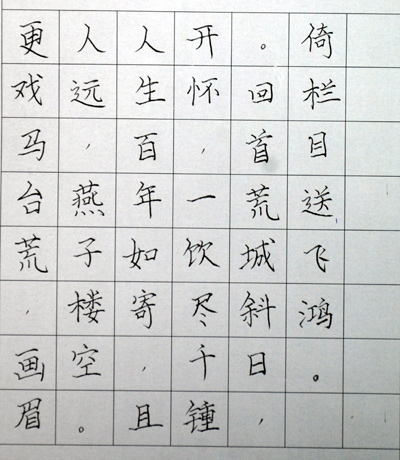 更戏马台荒，画眉
人远，燕子楼空。
人生百年如寄，且
开怀，一饮尽千锺
。回首荒城斜日，
倚栏目送飞鸿。